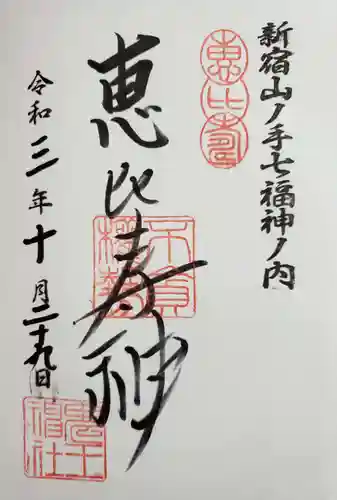 新宿山ノ手七福神ノ内
恵比寿
恵比寿神
令和三年十月二十九日
鬼王神社